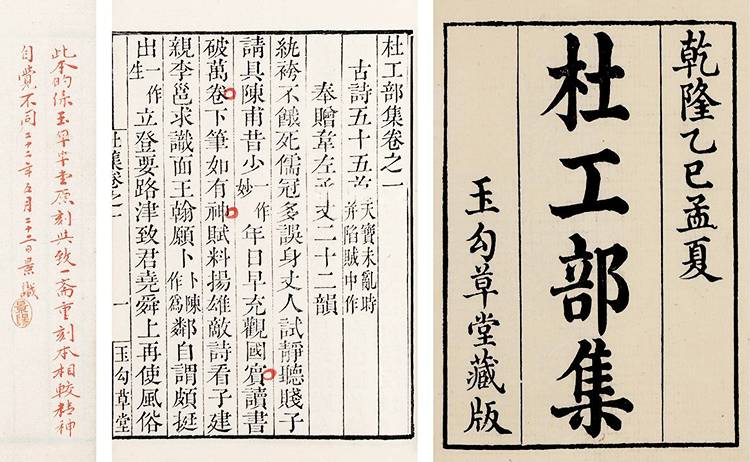 乾隆乙巳孟夏
杜工部集
玉勾草堂藏版
杜工部集卷之一
古詩五十五首 天寶未亂時
并陷賊中作
奉贈韋左丞丈二十二韻
紈袴不餓死儒冠多誤身丈人試靜聽賤子
請具陳甫昔少一作妙年日早充觀國賓讀書
破萬卷下筆如有神賦料揚雄敵詩看子建
親李邕求識面王翰願卜卜陳作為鄰自謂頗挺
出一作生立登要路津致君堯舜上再使風俗
杜集卷之一 一 玉勾草堂
此本的係玉勾草堂原刻與致一斋重刻本相較精神
自覺不同